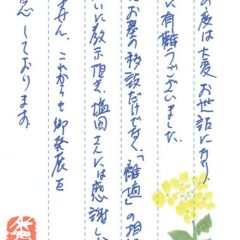 の度は大変お世話になり
に有難うございました。
お墓の移設だけでなく、「離過」の相
いに教示頂き、塩田さんには感謝し
ません。これからも御発展を
念しております。